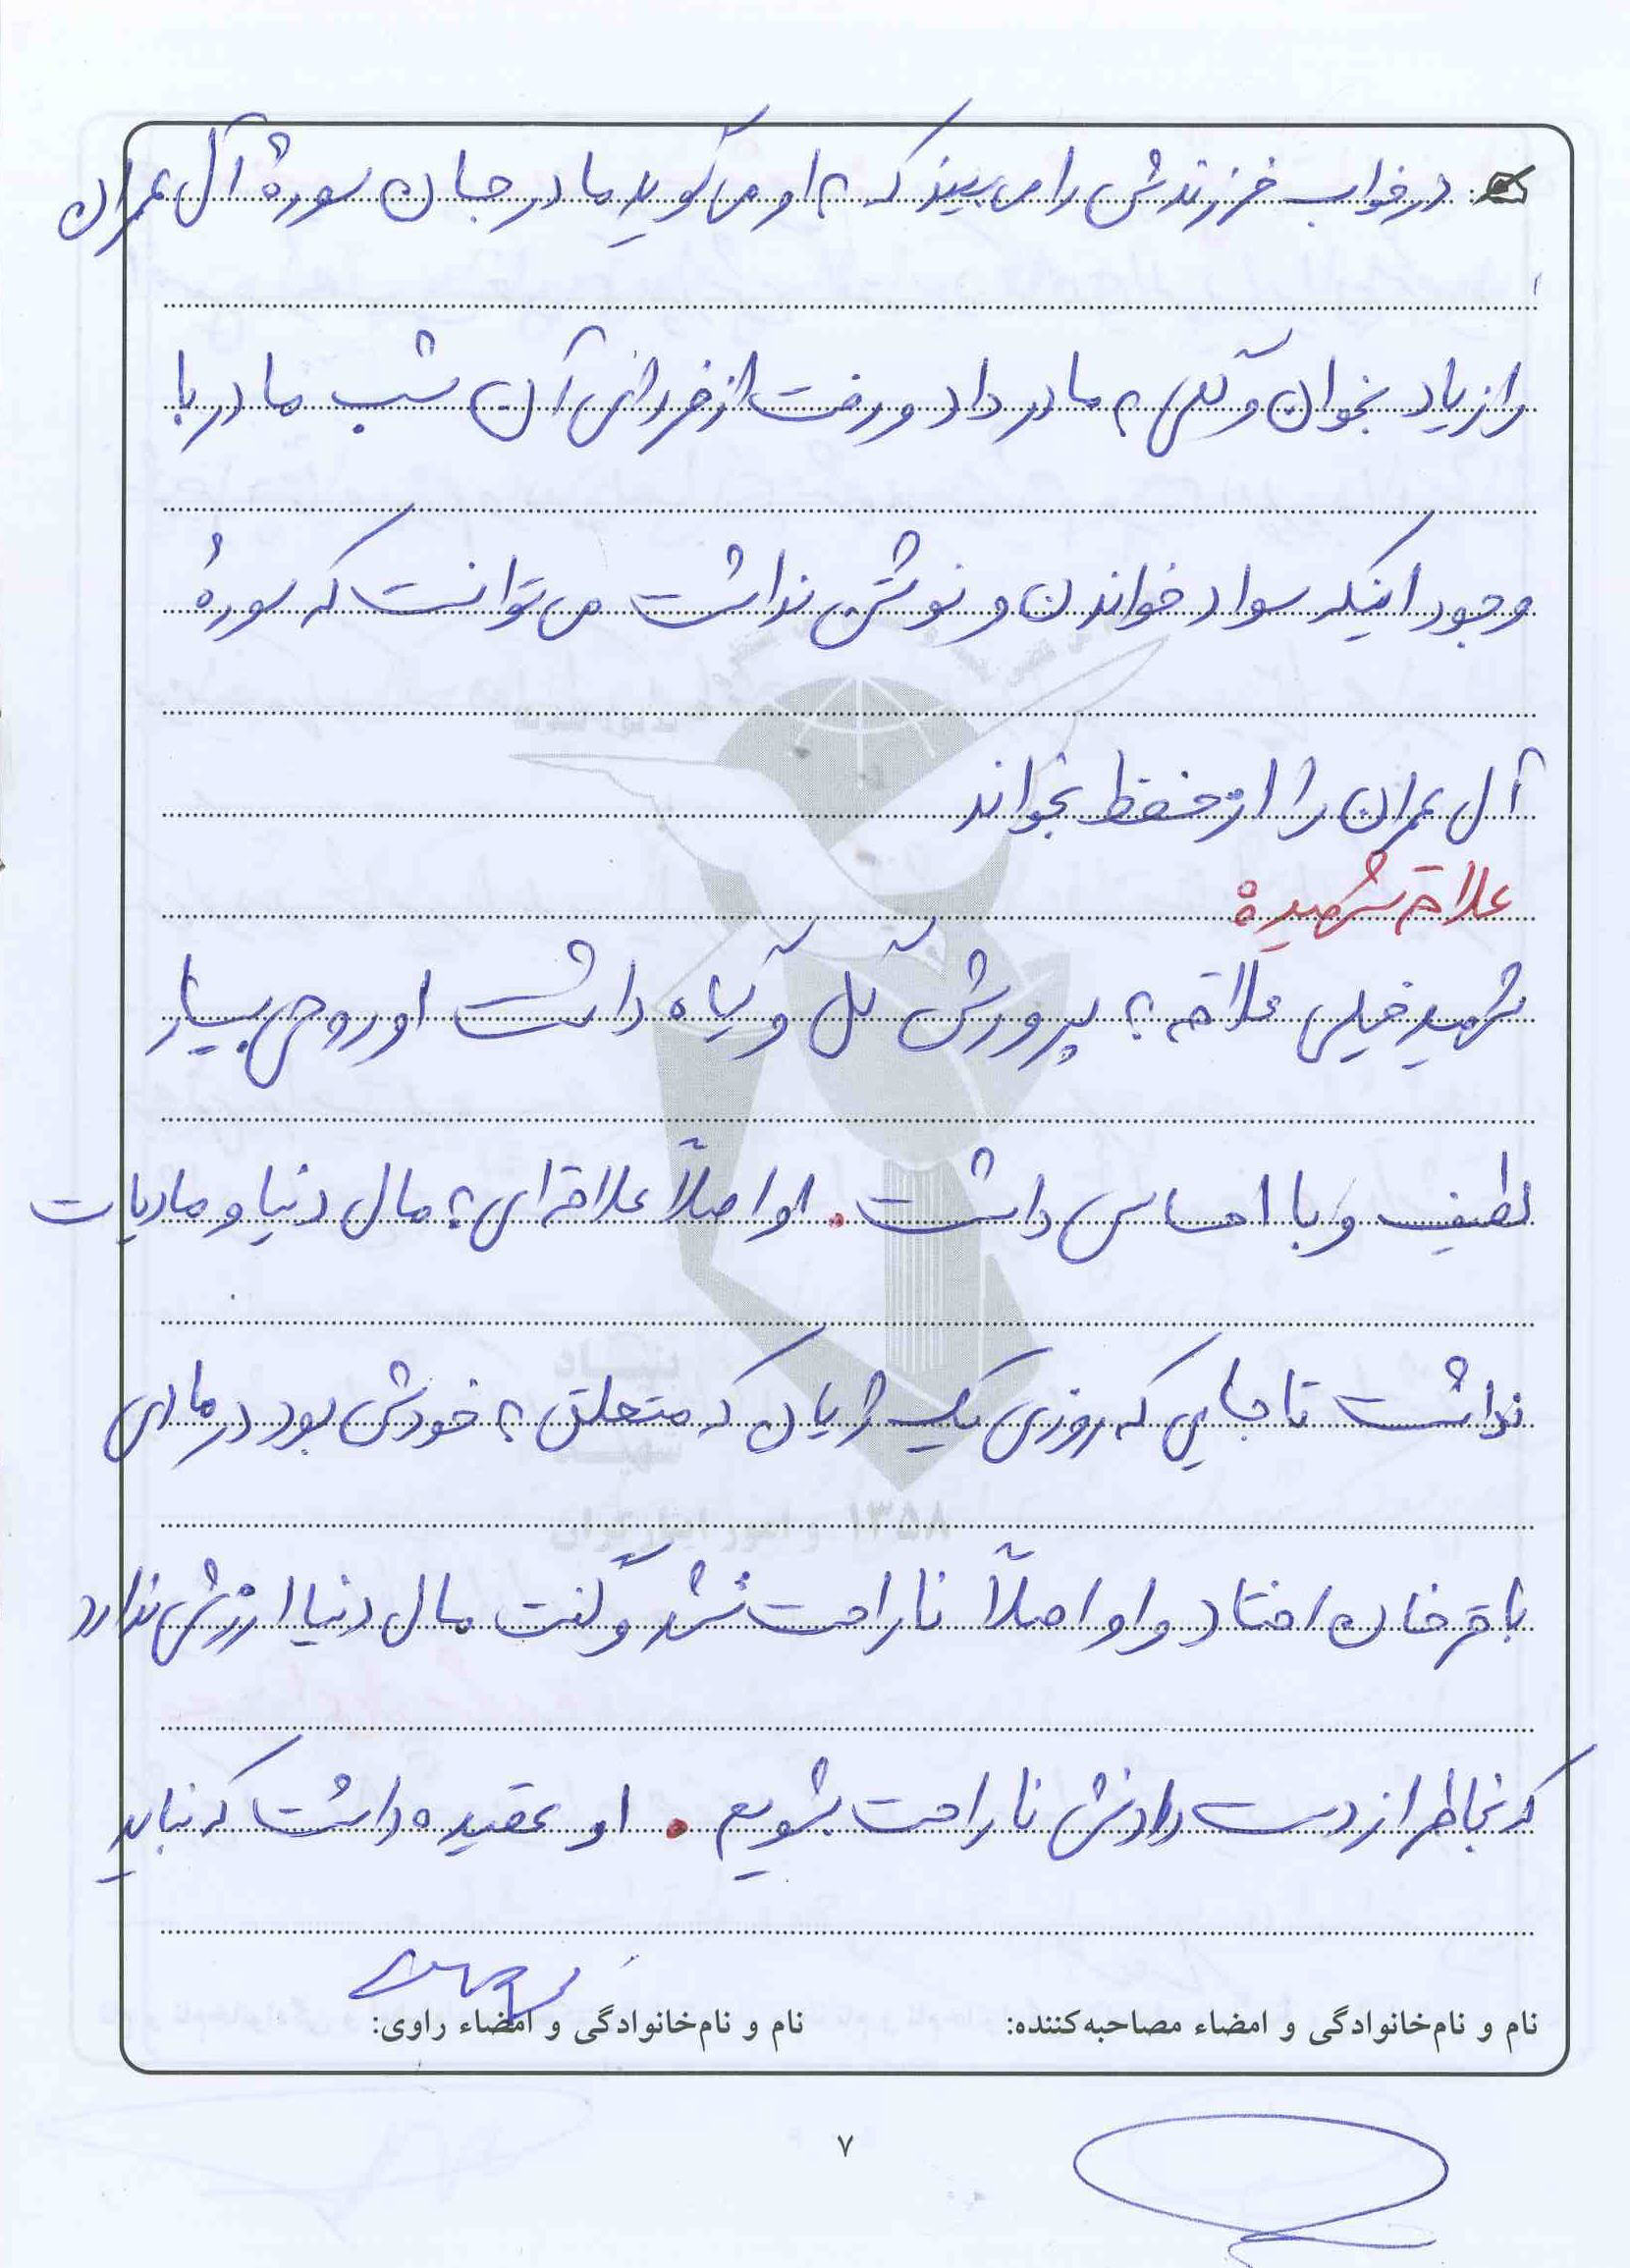 در خواب فرزندش را می بیند که به او می گوید مادر جان سورهٔ آل عمران
را زیاد بخوان و گلی به مادر داد و رفت از فردای آن شب مادر با
وجود اینکه سواد خواندن و نوشتن نداشت می توانست که سورهٔ
آل عمران را از حفظ بخواند
علاقه شهید:
شهید خیلی علاقه به پرورش گل و گیاه داشت او روحی بسیار
لطیف و با احساس داشت. او اصلاً علاقه ای به مال دنیا و مادیات
نداشت تا جایی که روزی یک ژیان که متعلق به خودش بود در
باقرخان افتاد و او اصلاً ناراحت نشد و گفت مال دنیا ارزش ندارد
که بخاطر از دست دادنش ناراحت بشویم. او عقیده داشت که نباید
نام و نام‌خانوادگی و امضاء مصاحبه‌کننده: نام و نام‌خانوادگی و امضاء راوی:
۷
بنیاد
شهید
۱۳۵۸ و امور ایثارگران